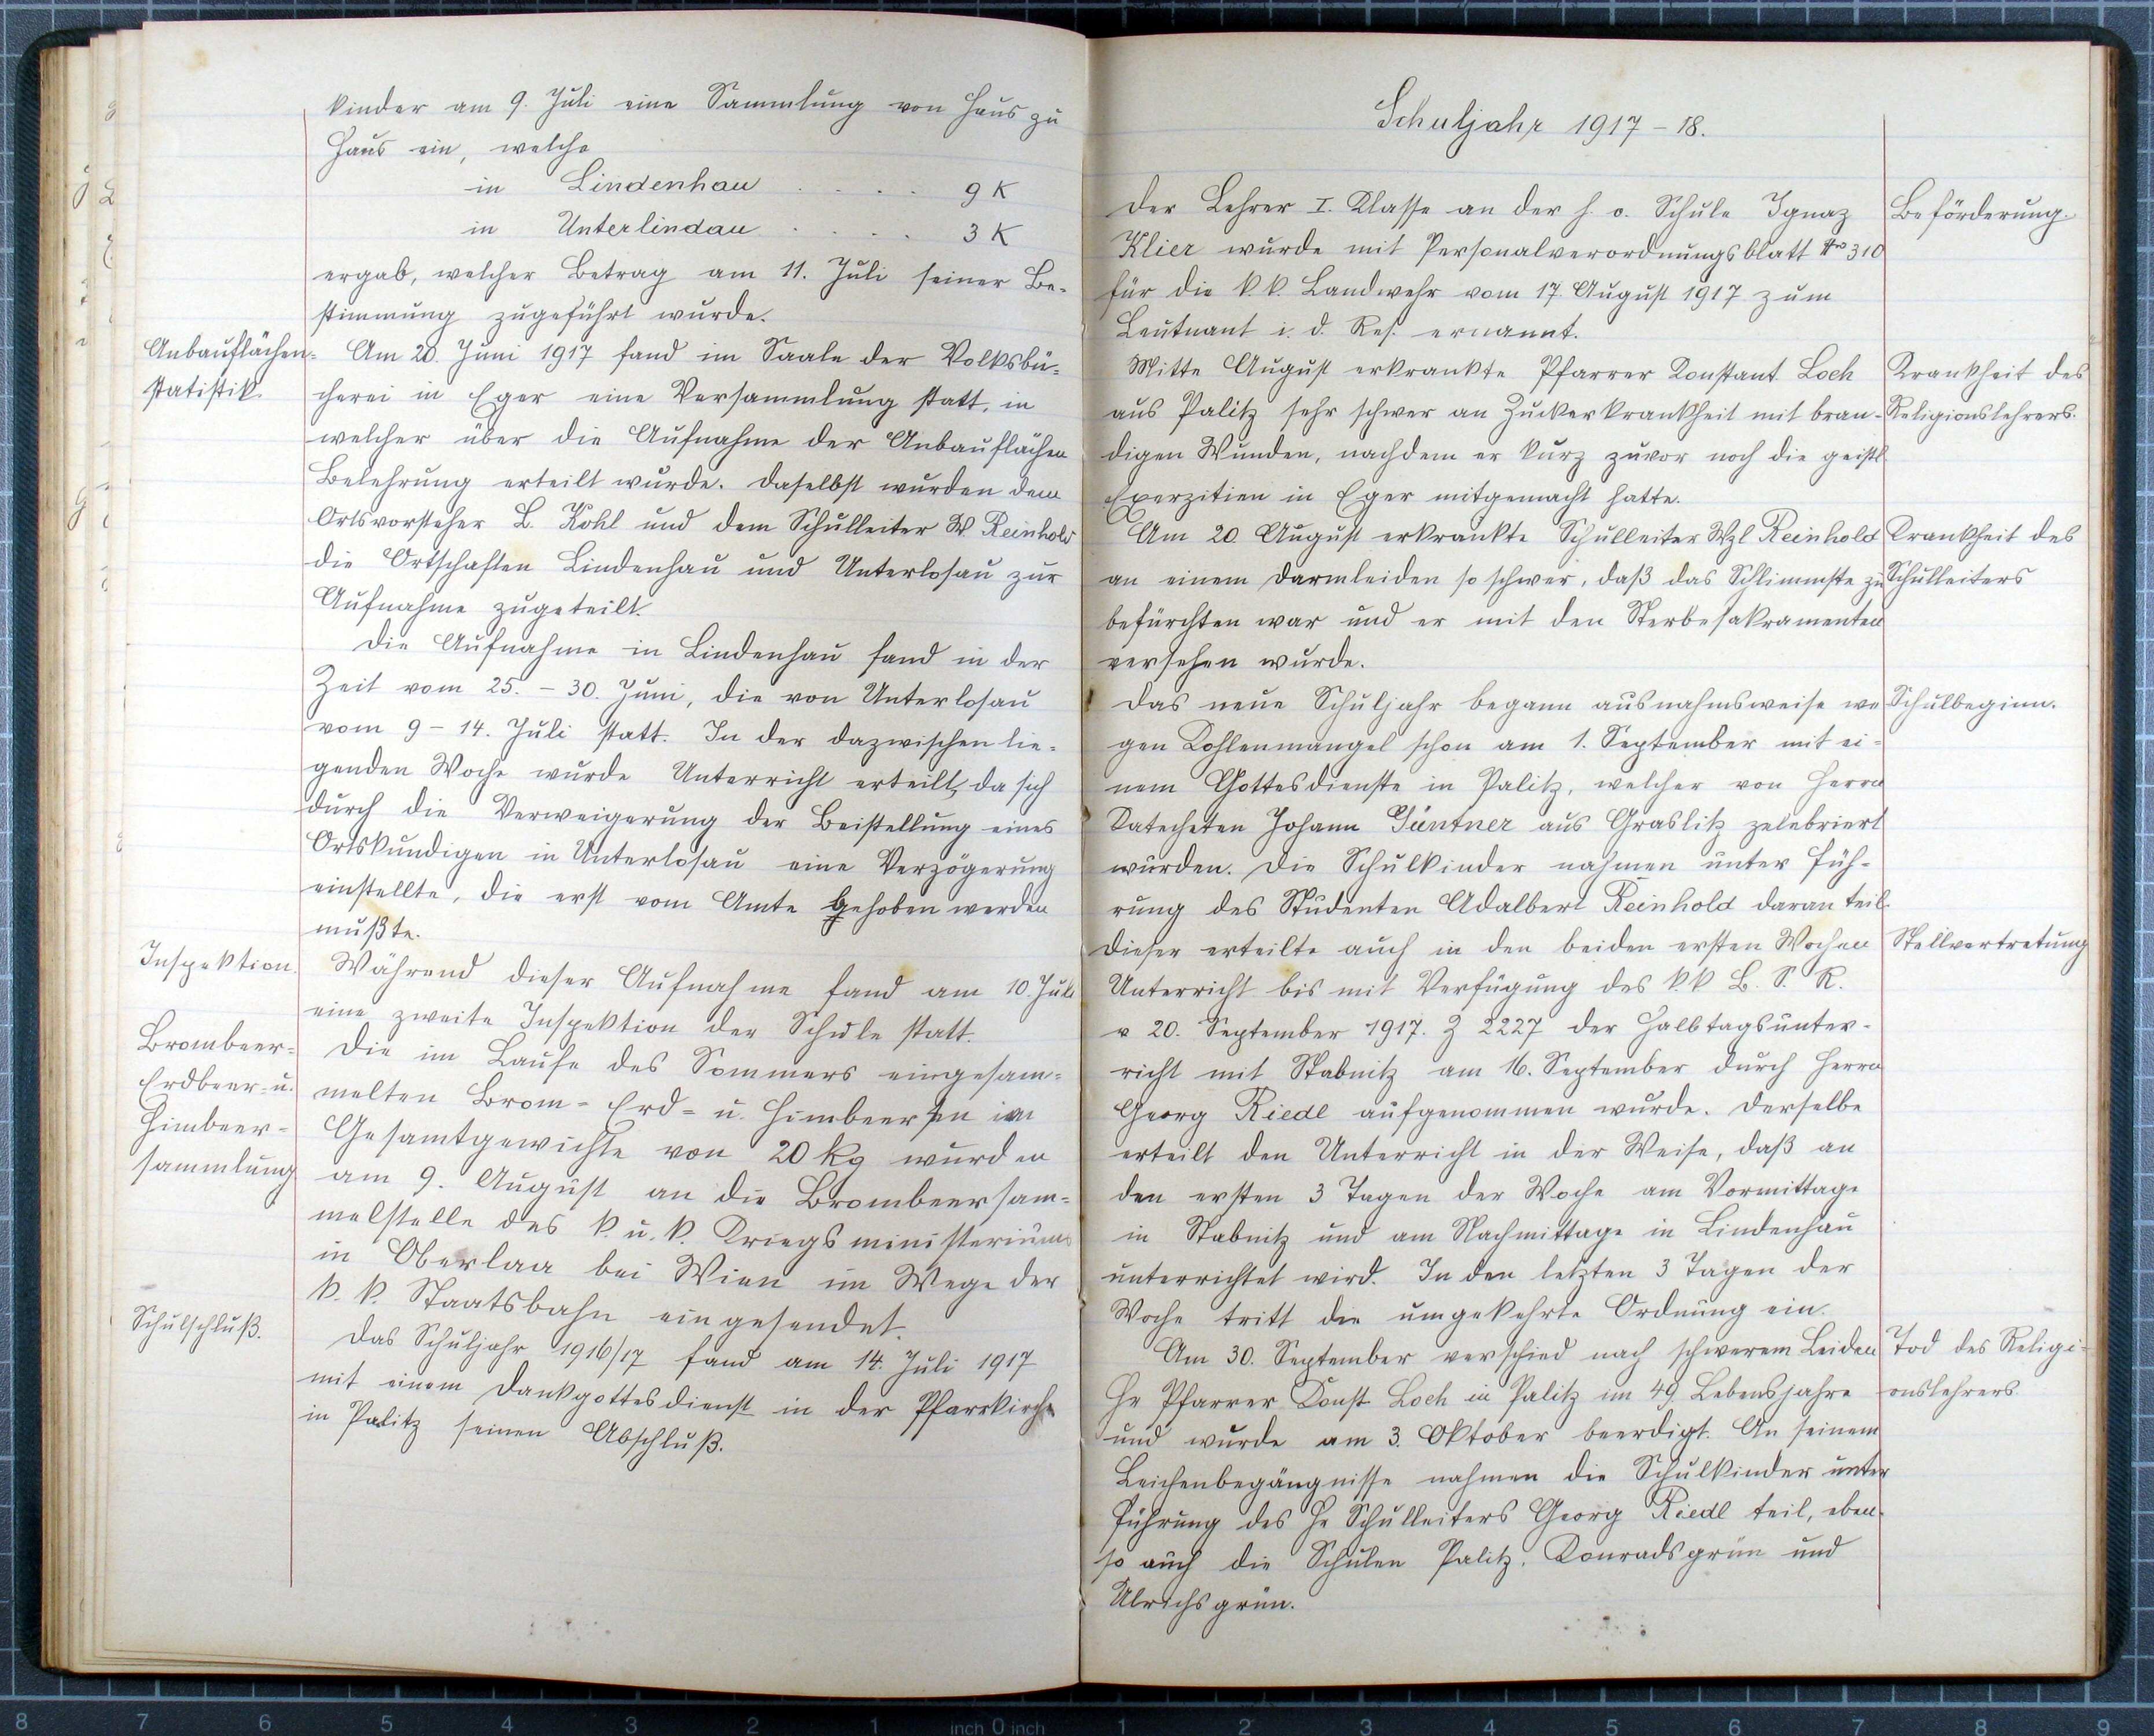 kinder am 9. Juli eine Sammlung von Haus zu
Haus ein, welche
in Lindenhau . . . . 9 K
in Unterlindau . . . . 3 K
ergab, welcher Betrag am 11. Juli seiner Be-
stimmung zugeführt wurde.
Anbauflächen-
statistik.
Am 20. Juni 1917 fand im Saale der Volksbü-
cherei in Eger eine Versammlung statt, in
welcher über die Aufnahme der Anbauflächen
Belehrung erteilt wurde. Daselbst wurden dem
Ortsvorsteher L. Kohl und dem Schulleiter W. Reinhold
die Ortschaften Lindenhau und Unterlosau zur
Aufnahme zugeteilt.
Die Aufnahme in Lindenhau fand in der
Zeit vom 25. – 30. Juni, die von Unterlosau
vom 9 – 14. Juli statt. In der dazwischen lie-
genden Woche wurde Unterricht erteilt, da sich
durch die Verweigerung der Beistellung eines
Ortskundigen in Unterlosau eine Verzögerung
einstellte, die erst vom Amte behoben werden
mußte.
Inspektion.
Während dieser Aufnahme fand am 10. Juli
eine zweite Inspektion der Schule statt.
Brombeer-
Erdbeer- u.
Himbeer-
sammlung
Die im Laufe des Sommers eingesam-
melten Brom- Erd- u. Himbeeren im
Gesamtgewichte von 20 kg wurden
am 9. August an die Brombeersam-
melstelle des k. u. k. Kriegsministeriums
in Oberlaa bei Wien im Wege der
k. k. Staatsbahn eingesendet.
Schulschluß.
Das Schuljahr 1916/17 fand am 14. Juli 1917
mit einem Dankgottesdienst in der Pfarrkirche
in Palitz seinen Abschluß.
Schuljahr 1917 – 18.
Der Lehrer I. Klasse an der h. o. Schule Ignaz
Klier wurde mit Personalverordnungsblatt Nr 310
für die k. k. Landwehr vom 17. August 1917 zum
Leutnant i. d. Res. ernannt.
Beförderung.
Mitte August erkrankte Pfarrer Konstant. Loch
aus Palitz sehr schwer an Zuckerkrankheit mit bran-
digen Wunden, nachdem er kurz zuvor noch die geistl.
Exerzitien in Eger mitgemacht hatte.
Krankheit des
Religionslehrers.
Am 20. August erkrankte Schulleiter Wzl Reinhold
an einem Darmleiden so schwer, daß das Schlimmste zu
befürchten war und er mit den Sterbesakramenten
versehen wurde.
Krankheit des
Schulleiters
Das neue Schuljahr begann ausnahmsweise we
gen Kohlenmangel schon am 1. September mit ei-
nem Gottesdienste in Palitz, welcher von Herrn
Katecheten Johann Güntner aus Graslitz zelebriert
wurden. Die Schulkinder nahmen unter Füh-
rung des Studenten Adalbert Reinhold daran teil.
Schulbeginn.
Dieser erteilte auch in den beiden ersten Wochen
Unterricht bis mit Verfügung des k. k B. S. R.
v 20. September 1917. Z 2227 der Halbtagsunter-
richt mit Stabnitz am 16. September durch Herrn
Georg Riedl aufgenommen wurde. Derselbe
erteilt den Unterricht in der Weise, daß an
den ersten 3 Tagen der Woche am Vormittage
in Stabnitz und am Nachmittage in Lindenhau
unterrichtet wird. In den letzten 3 Tagen der
Woche tritt die umgekehrte Ordnung ein.
Stellvertretung
Am 30. September verschied nach schwerem Leiden
Hr Pfarrer Konst. Loch in Palitz im 49. Lebensjahre
und wurde am 3. Oktober beerdigt. An seinem
Leichenbegängnisse nahmen die Schulkinder unter
Führung des Hr Schulleiters Georg Riedl teil, eben-
so auch die Schulen Palitz, Konradsgrün und
Ulrichsgrün.
Tod des Religi-
onslehrers.
8 7 6 5 4 3 2 1 inch 0 inch 1 2 3 4 5 6 7 8 9